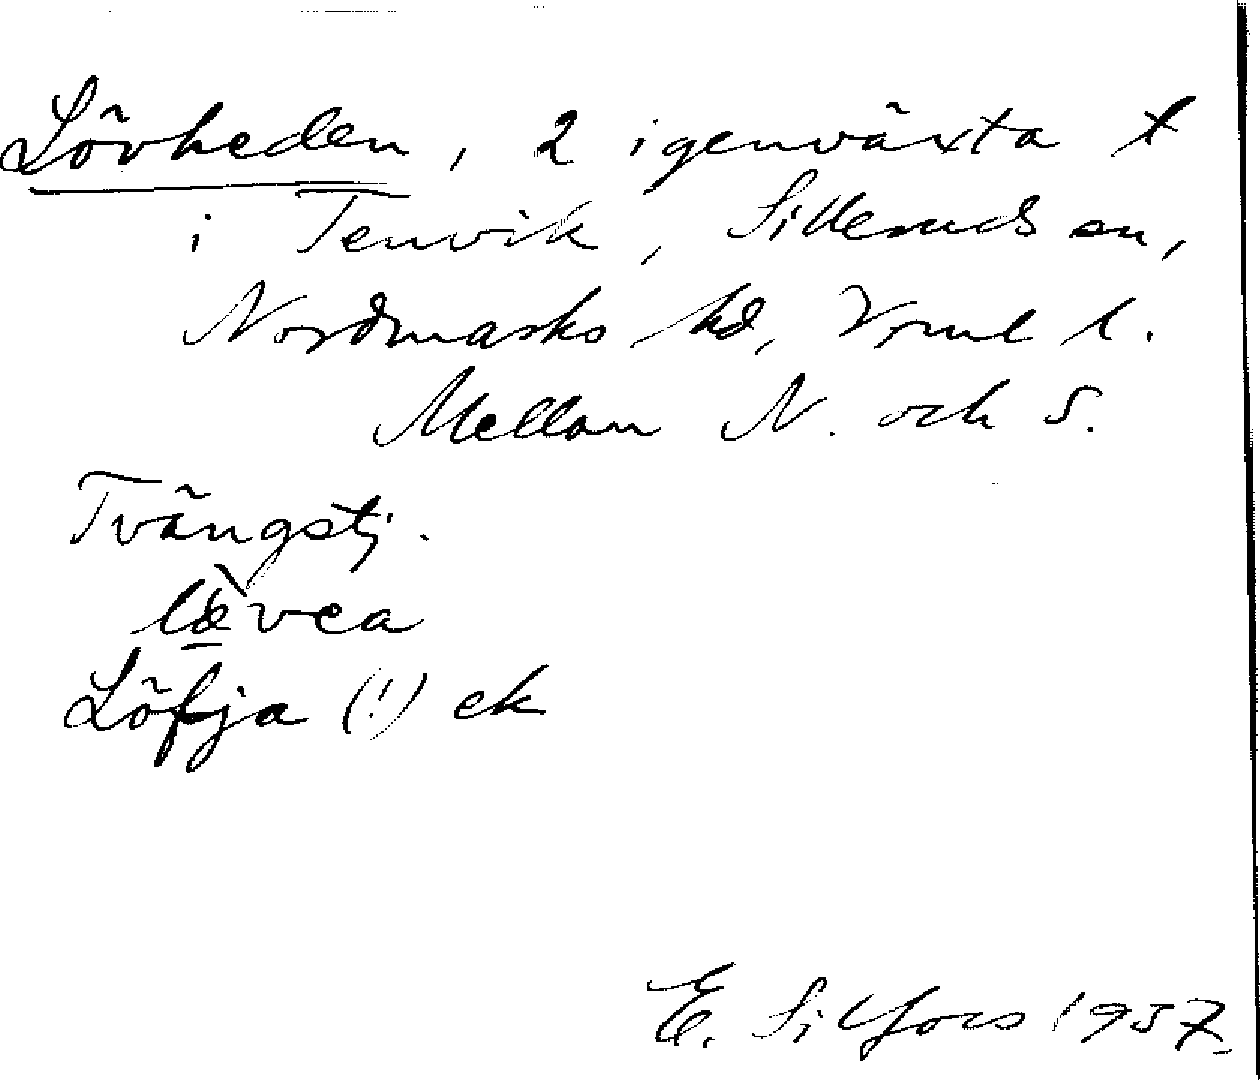 Lövheden, 2 igenväxta t
i Tenvik, Silleruds sn,
Nordmarks hd, Vrml l.
Mellan N. och S.
Tvängstj.
lö̀vea
Löfja (!) ek
E. Silfors 1937.